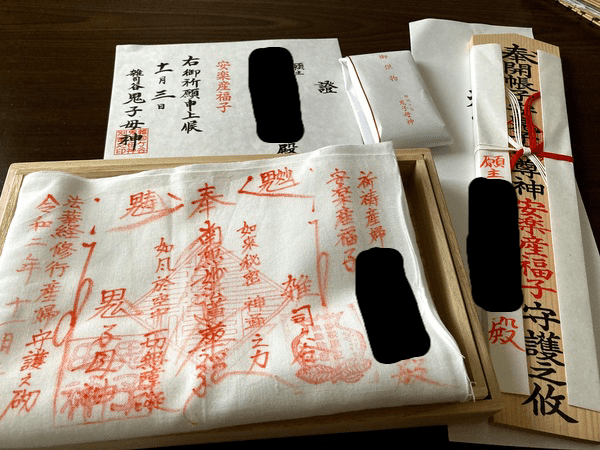 證
願主
殿
安楽産福子
右御祈願申上候
十一月三日
雑司谷 鬼子母神
御供物
鬼子母神
奉開帳
尊神
安楽産福子
守護之攸
願主
殿
祈福産婦
安楽産福子
殿
雑司谷
如来秘密 神通之力
奉
南無妙法蓮華
如月於空中 一切
鬼子母神
法華経修行産婦守護之砌
令和二年十一月